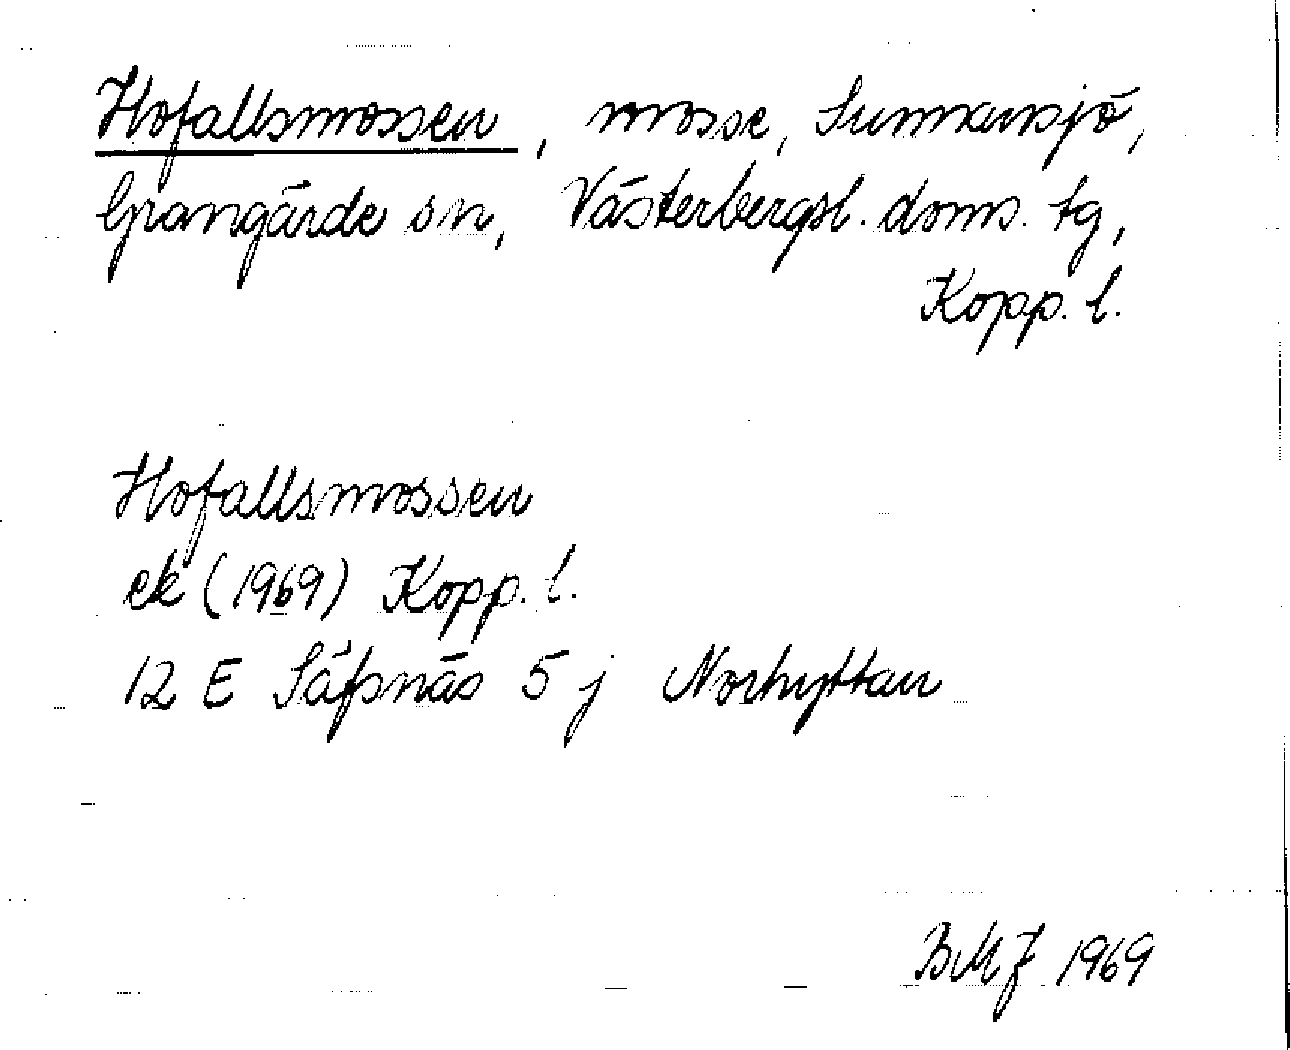 Hofallsmossen, mosse, Sunnansjö,
Grangärde sn, Västerbergsl. doms. tg,
Kopp. l.
Hofallsmossen
ek (1969) Kopp. l.
12 E Säfsnäs 5 j Norhyttan
BMJ 1969